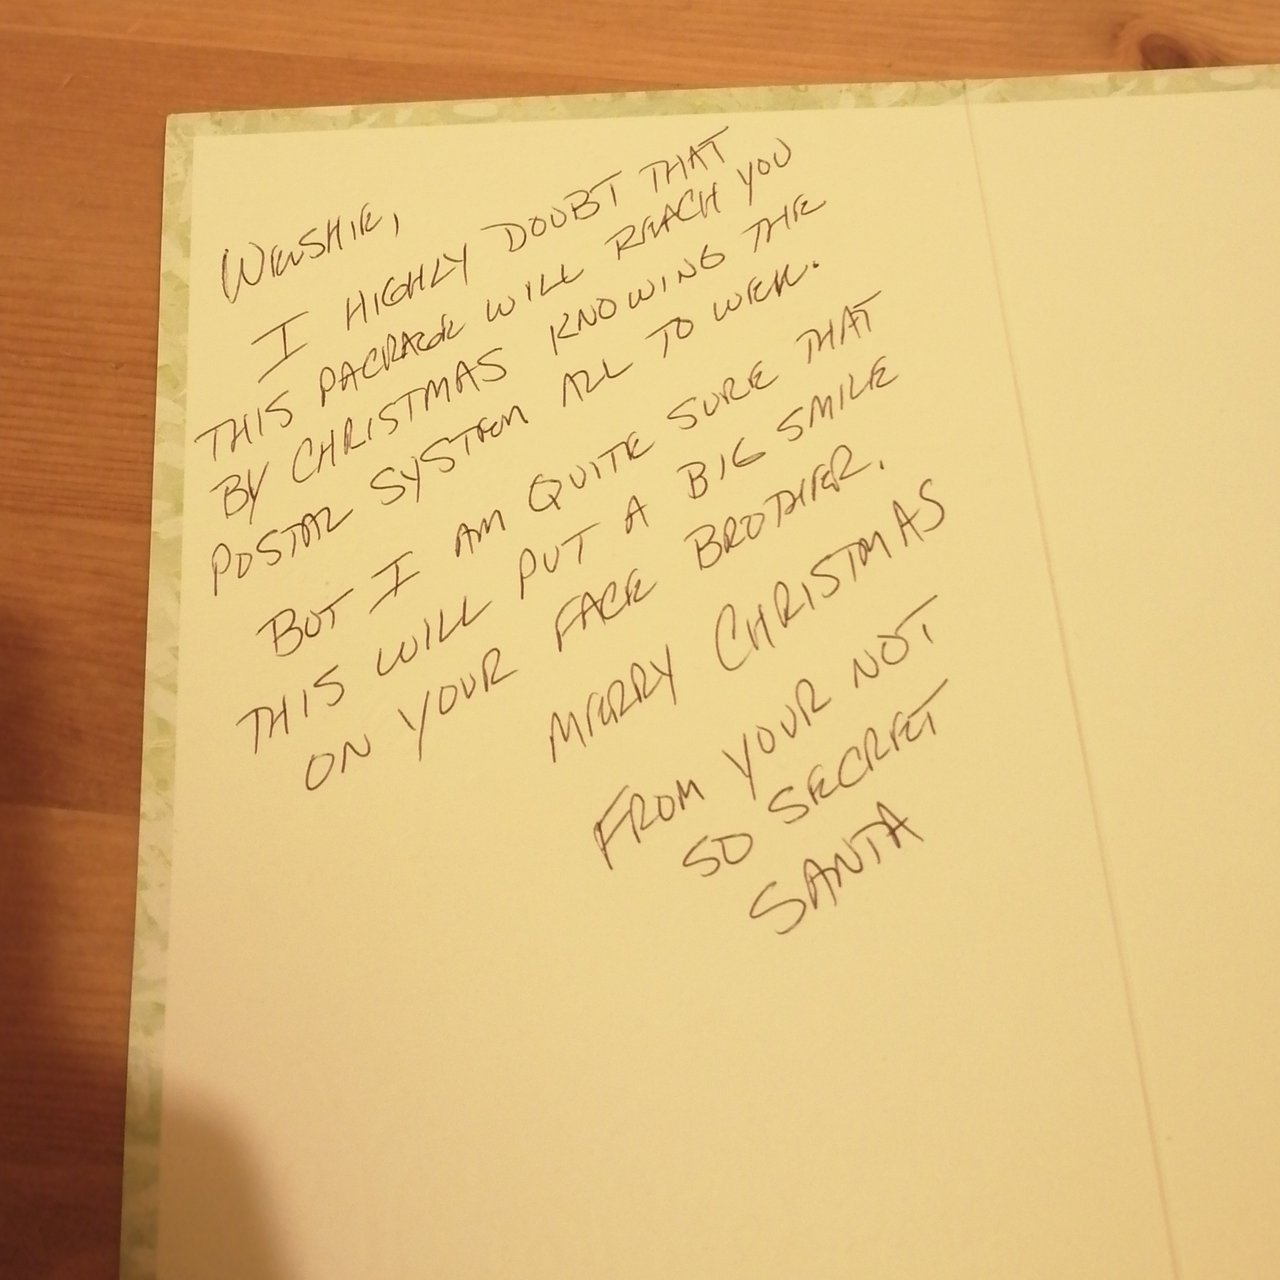 WELSHIE,
I HIGHLY DOUBT THAT
THIS PACKAGE WILL REACH YOU
BY CHRISTMAS KNOWING THE
POSTAL SYSTEM ALL TO WELL.
BUT I AM QUITE SURE THAT
THIS WILL PUT A BIG SMILE
ON YOUR FACE BROTHER.
MERRY CHRISTMAS
FROM YOUR NOT
SO SECRET
SANTA